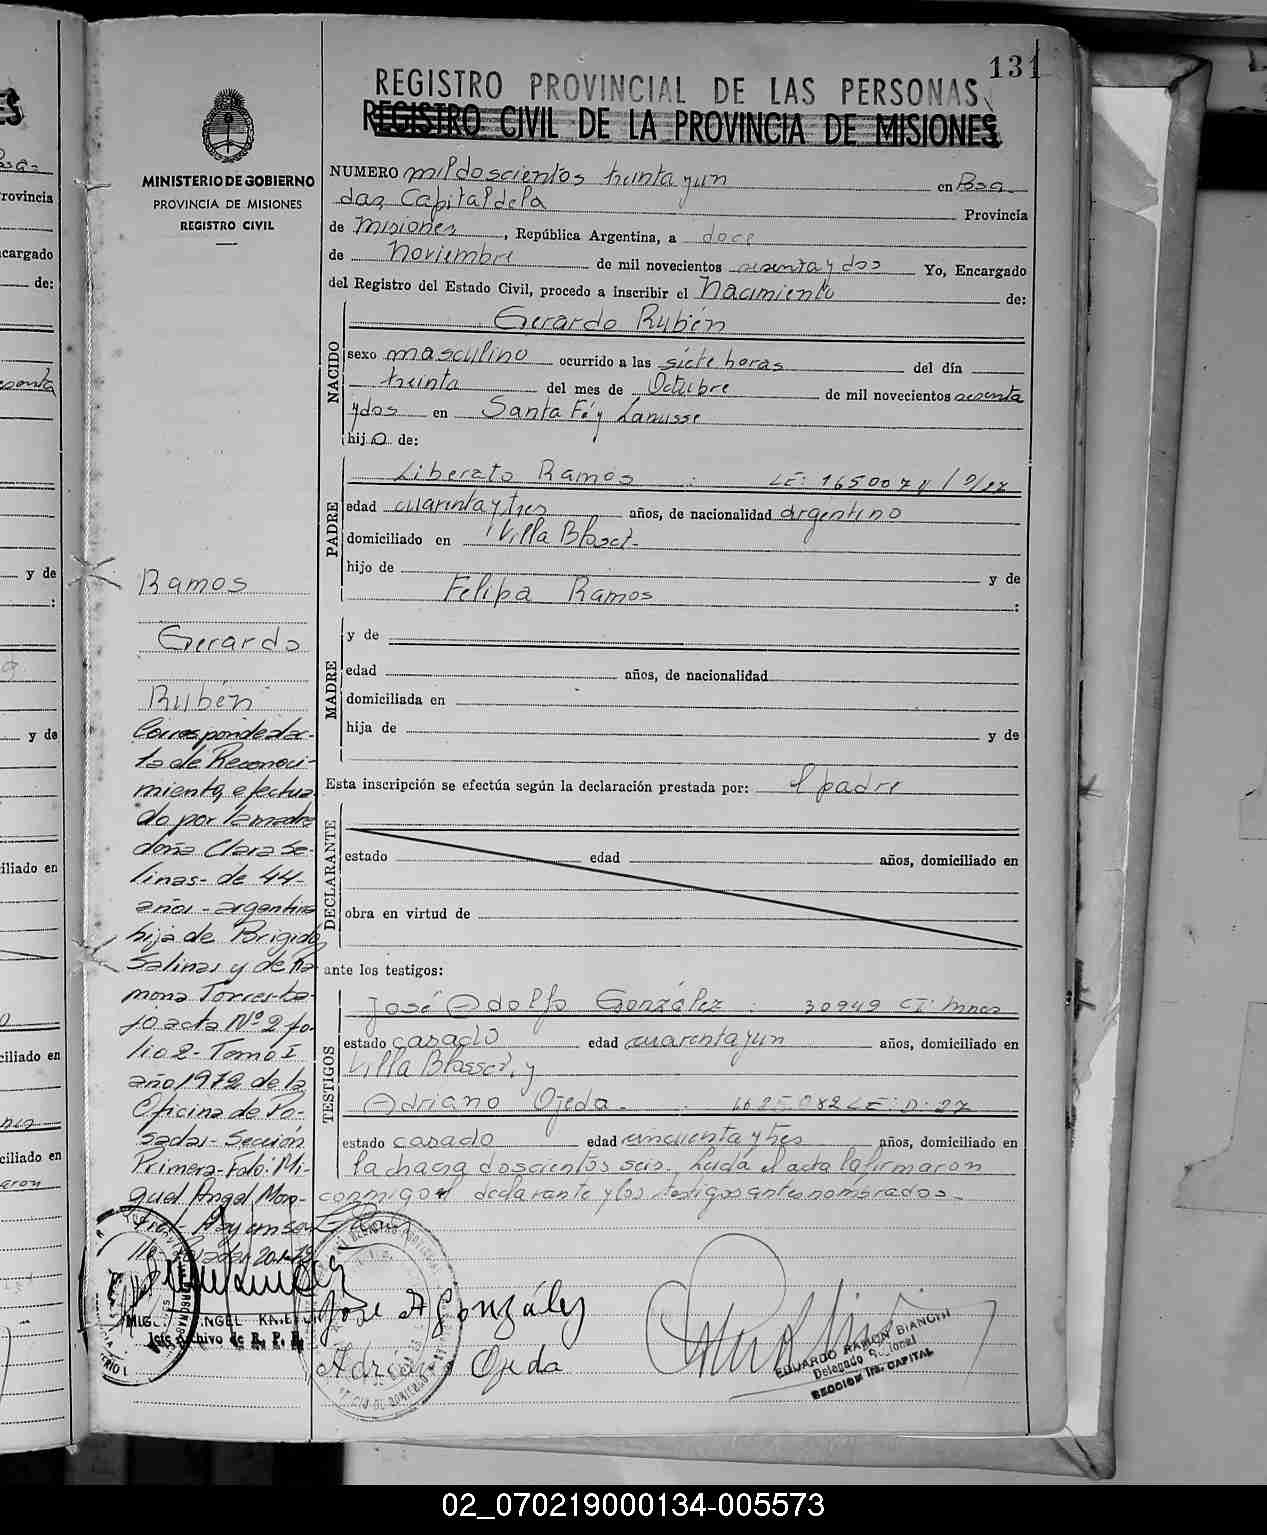 131
REGISTRO PROVINCIAL DE LAS PERSONAS
REGISTRO CIVIL DE LA PROVINCIA DE MISIONES
MINISTERIO DE GOBIERNO
PROVINCIA DE MISIONES
REGISTRO CIVIL
NUMERO mil doscientos treinta y un en Posa-
das Capital de la Provincia
de Misiones, República Argentina, a doce
de Noviembre de mil novecientos sesenta y dos Yo, Encargado
del Registro del Estado Civil, procedo a inscribir el Nacimiento de:
NACIDO
Gerardo Rubén
sexo masculino ocurrido a las siete horas del día
treinta del mes de Octubre de mil novecientos sesenta
y dos en Santa Fé y Lanusse
hijo de:
PADRE
Liberato Ramos LE:
edad cuarenta y tres años, de nacionalidad argentino
domiciliado en Villa
hijo de y de
Felipa Ramos :
MADRE
y de
edad años, de nacionalidad
domiciliada en
hija de y de
Esta inscripción se efectúa según la declaración prestada por: el padre
DECLARANTE
estado edad años, domiciliado en
obra en virtud de
ante los testigos:
TESTIGOS
José Adolfo González 30949 CI: Mnes
estado casado edad cuarenta y un años, domiciliado en
Villa y
Adriano Ojeda
estado casado edad cincuenta y tres años, domiciliado en
la chacra doscientos seis. Leida el acta la firmaron
conmigo el declarante y los testigos antes nombrados.-
Ramos
Gerardo
Rubén
Corresponde ac-
ta de Reconoci-
miento, efectua
do por la madre
doña Clara Sa-
linas- de 44-
años- argentina
hija de Brigido
Salinas y de Ra
mona Torres- ba-
jo acta Nº 2 fo-
lio 2- Tomo I
año 1972 de la
Oficina de Po-
sadas- Sección
Primera-
guel Angel
José A González
Adriano Ojeda
Jefe Archivo de R. P. P.
EDUARDO RAMON BIANCHI
Delegado
SECCION 1ra. CAPITAL
rovincia
cargado
de:
y de
:
y de
iliado en
ciliado en
ciliado en
02_070219000134-005573